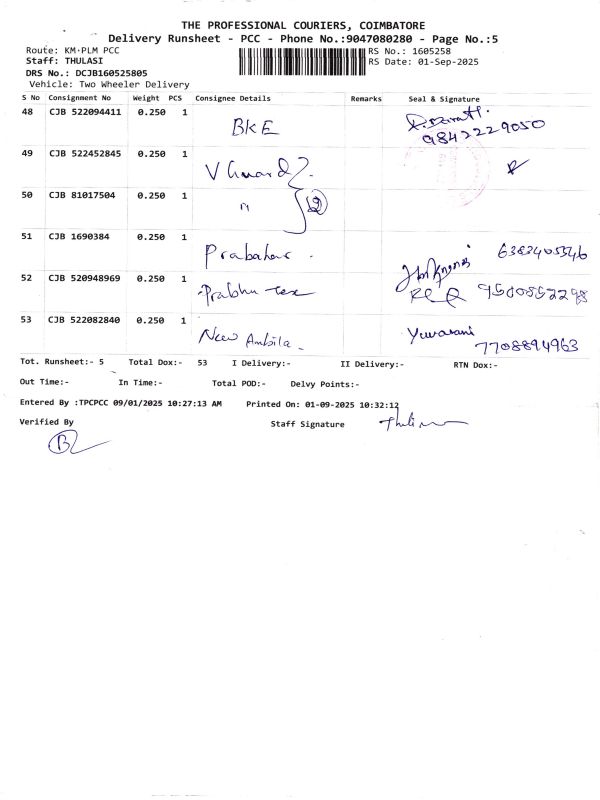 THE PROFESSIONAL COURIERS, COIMBATORE
Delivery Runsheet - PCC - Phone No.:9047080280 - Page No.:5
Route: KM-PLM PCC RS No.: 1605258
Staff: THULASI RS Date: 01-Sep-2025
DRS No.: DCJB160525805
Vehicle: Two Wheeler Delivery
S No Consignment No Weight PCS Consignee Details Remarks Seal & Signature
48 CJB 522094411 0.250 1 BKE 9842229050
49 CJB 522452845 0.250 1 V Guard
50 CJB 81017504 0.250 1 " 2
51 CJB 1690384 0.250 1 Prabahar. 6382405546
52 CJB 520948969 0.250 1 Prabhu tex 9500852298
53 CJB 522082840 0.250 1 New Ambila. Yuvarani
7708894963
Tot. Runsheet:- 5 Total Dox:- 53 I Delivery:- II Delivery:- RTN Dox:-
Out Time:- In Time:- Total POD:- Delvy Points:-
Entered By :TPCPCC 09/01/2025 10:27:13 AM Printed On: 01-09-2025 10:32:12
Verified By Staff Signature
B